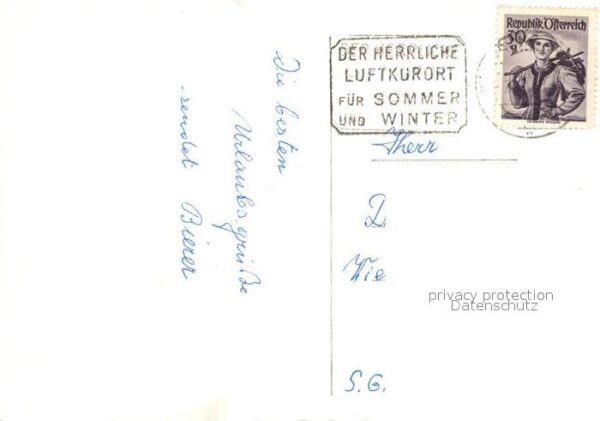 Die besten
Urlaubsgrüße
sendet Bierer
DER HERRLICHE
LUFTKURORT
FÜR SOMMER
UND WINTER
Republik Österreich
30
g
Herr
D
Wie
S.G.
privacy protection
Datenschutz